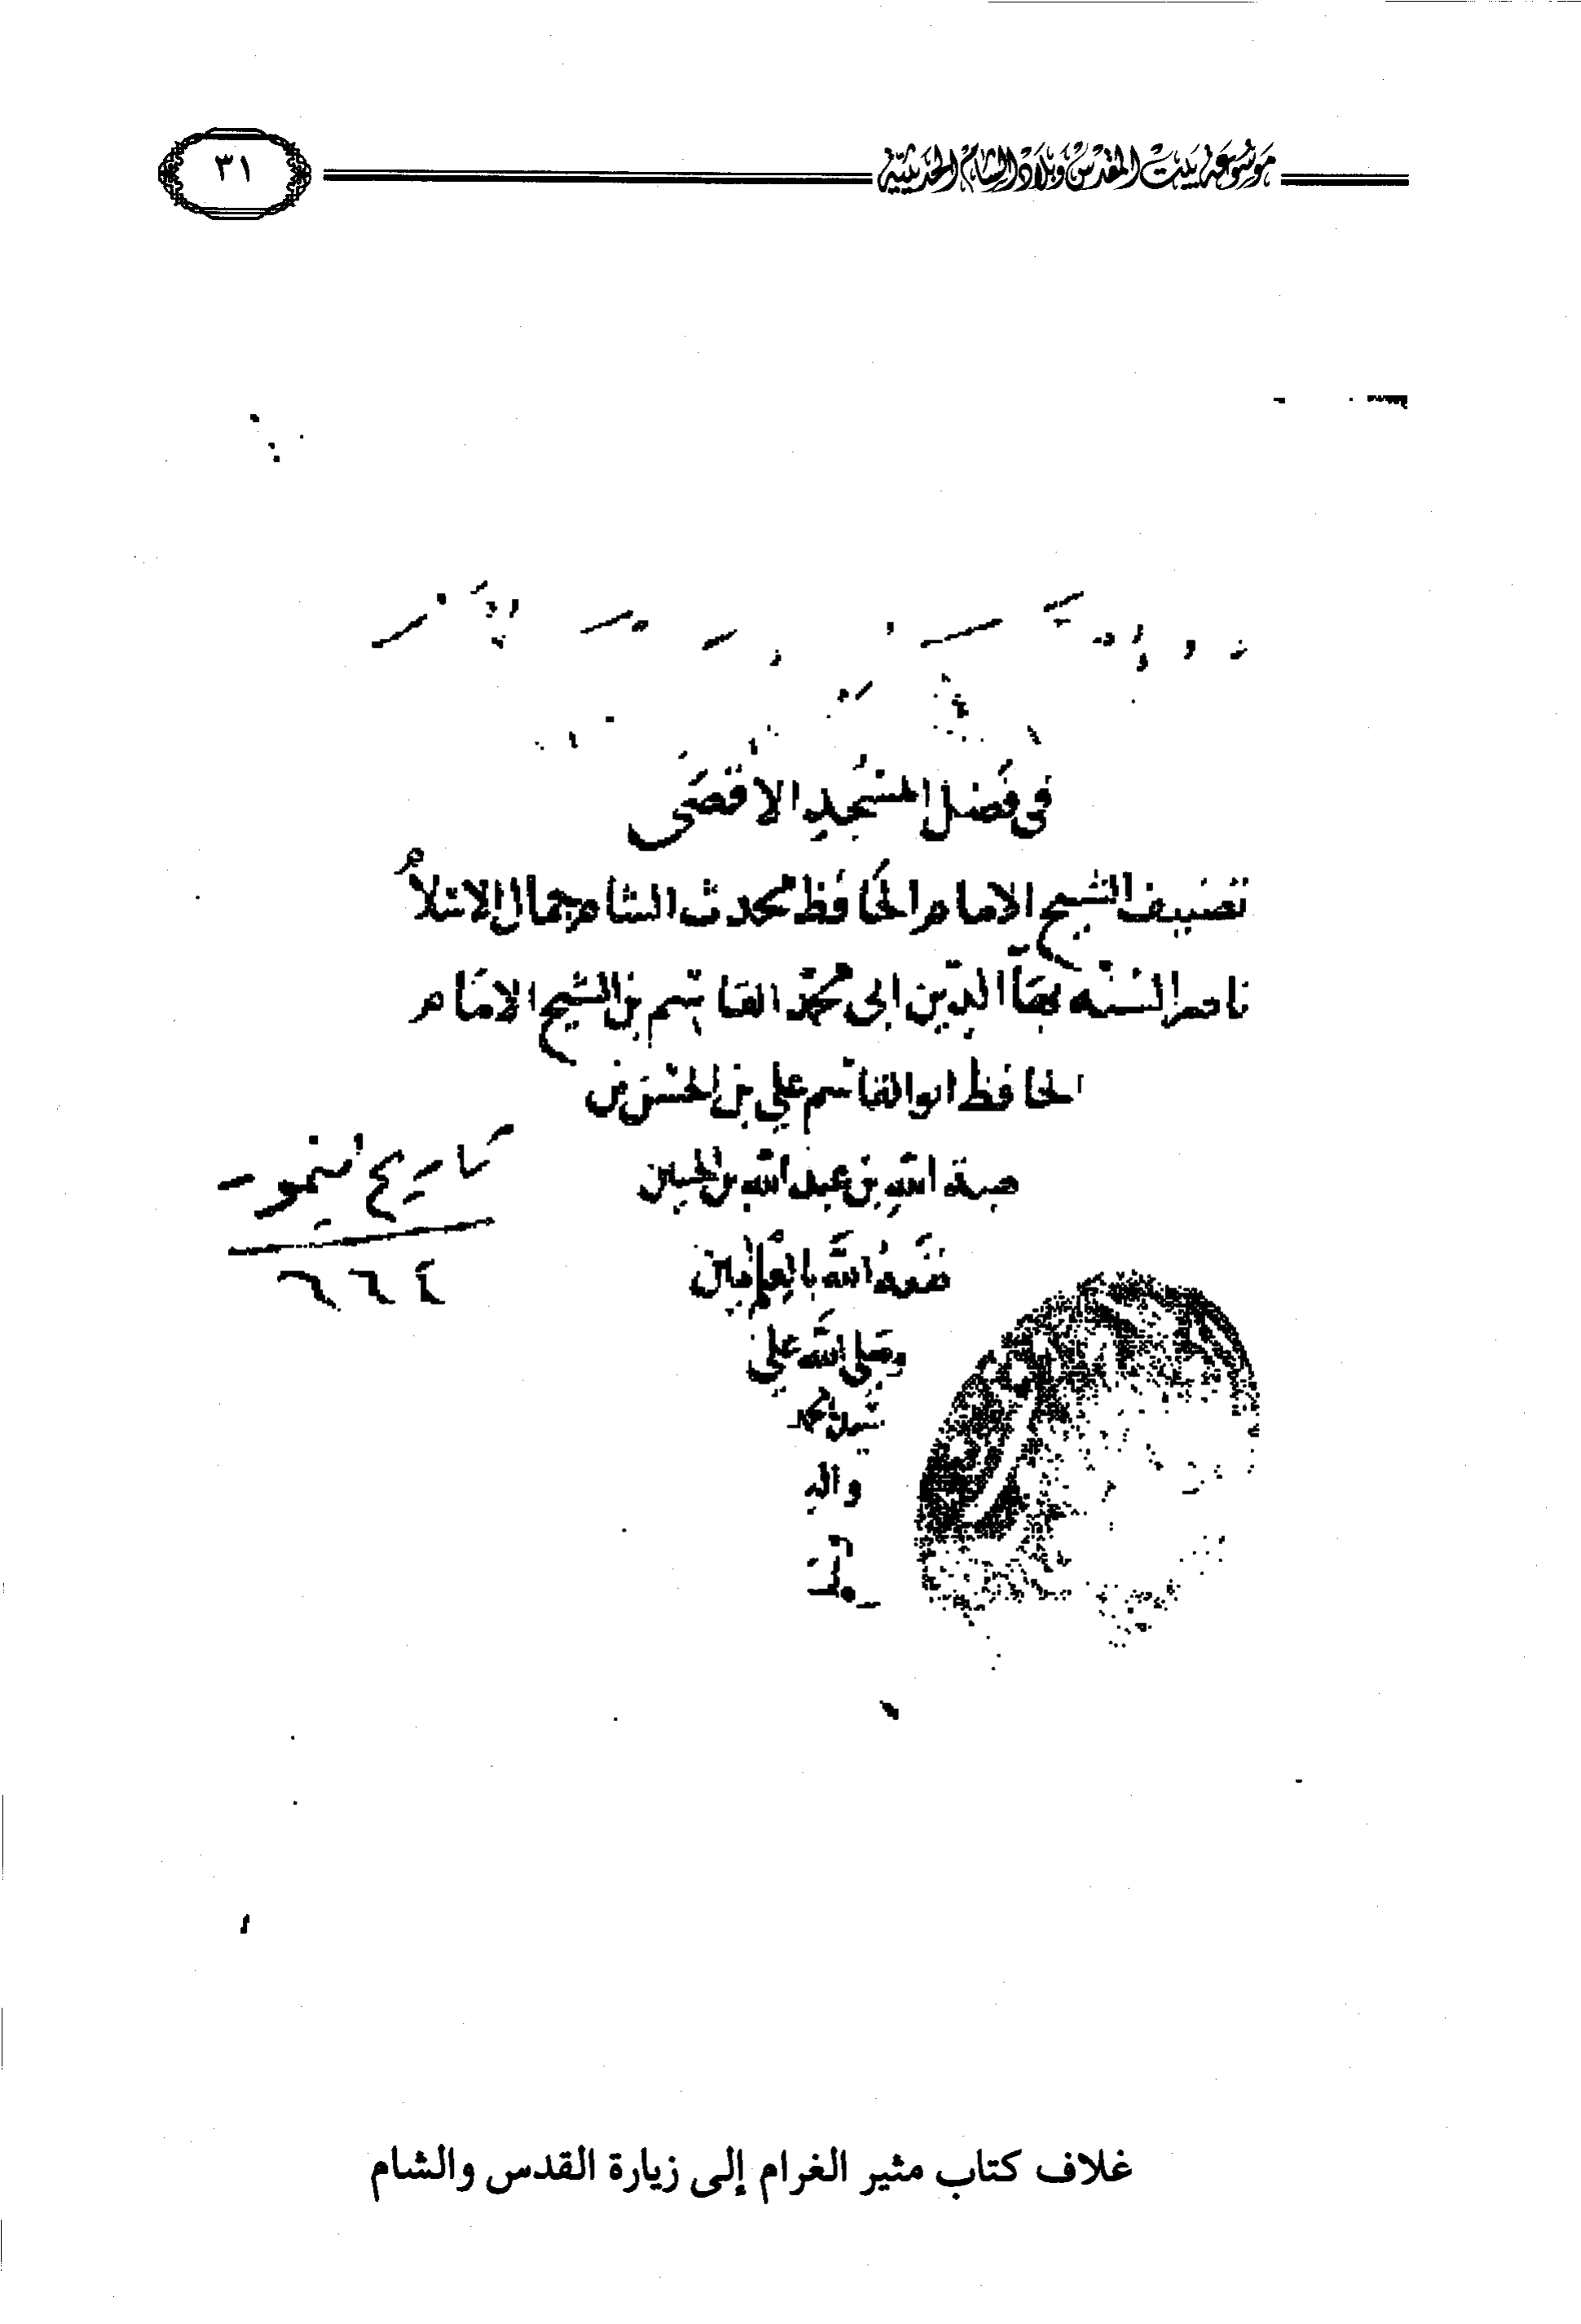 موسوعة بيت المقدس وبلاد الشام الحديثية
٣١
في فضل المسجد الاقصى
تصنيف الشيخ الامام الحافظ محدث الشام جمال الاسلام
ناصر السنه بهآ الدين ابى محمد القاسم بن الشيخ الامام
الحافظ ابو القاسم على بن الحسن بن
هبة الله بن عبد الله بن الحسين
نفعه الله بالعلم امين
وصلى الله على
محمد
واله
تاريخ
٦٦٤
غلاف كتاب مثير الغرام إلى زيارة القدس والشام